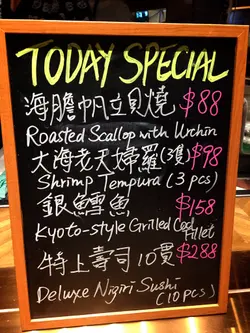 TODAY SPECIAL
海膽帆立貝燒 $88
Roasted Scallop with Urchin
大海老天婦羅(3隻) $98
Shrimp Tempura (3 pcs)
銀鱈魚 $158
Kyoto-style Grilled Cod
Fillet
特上壽司10貫 $288
Deluxe Nigiri Sushi
(10pcs)